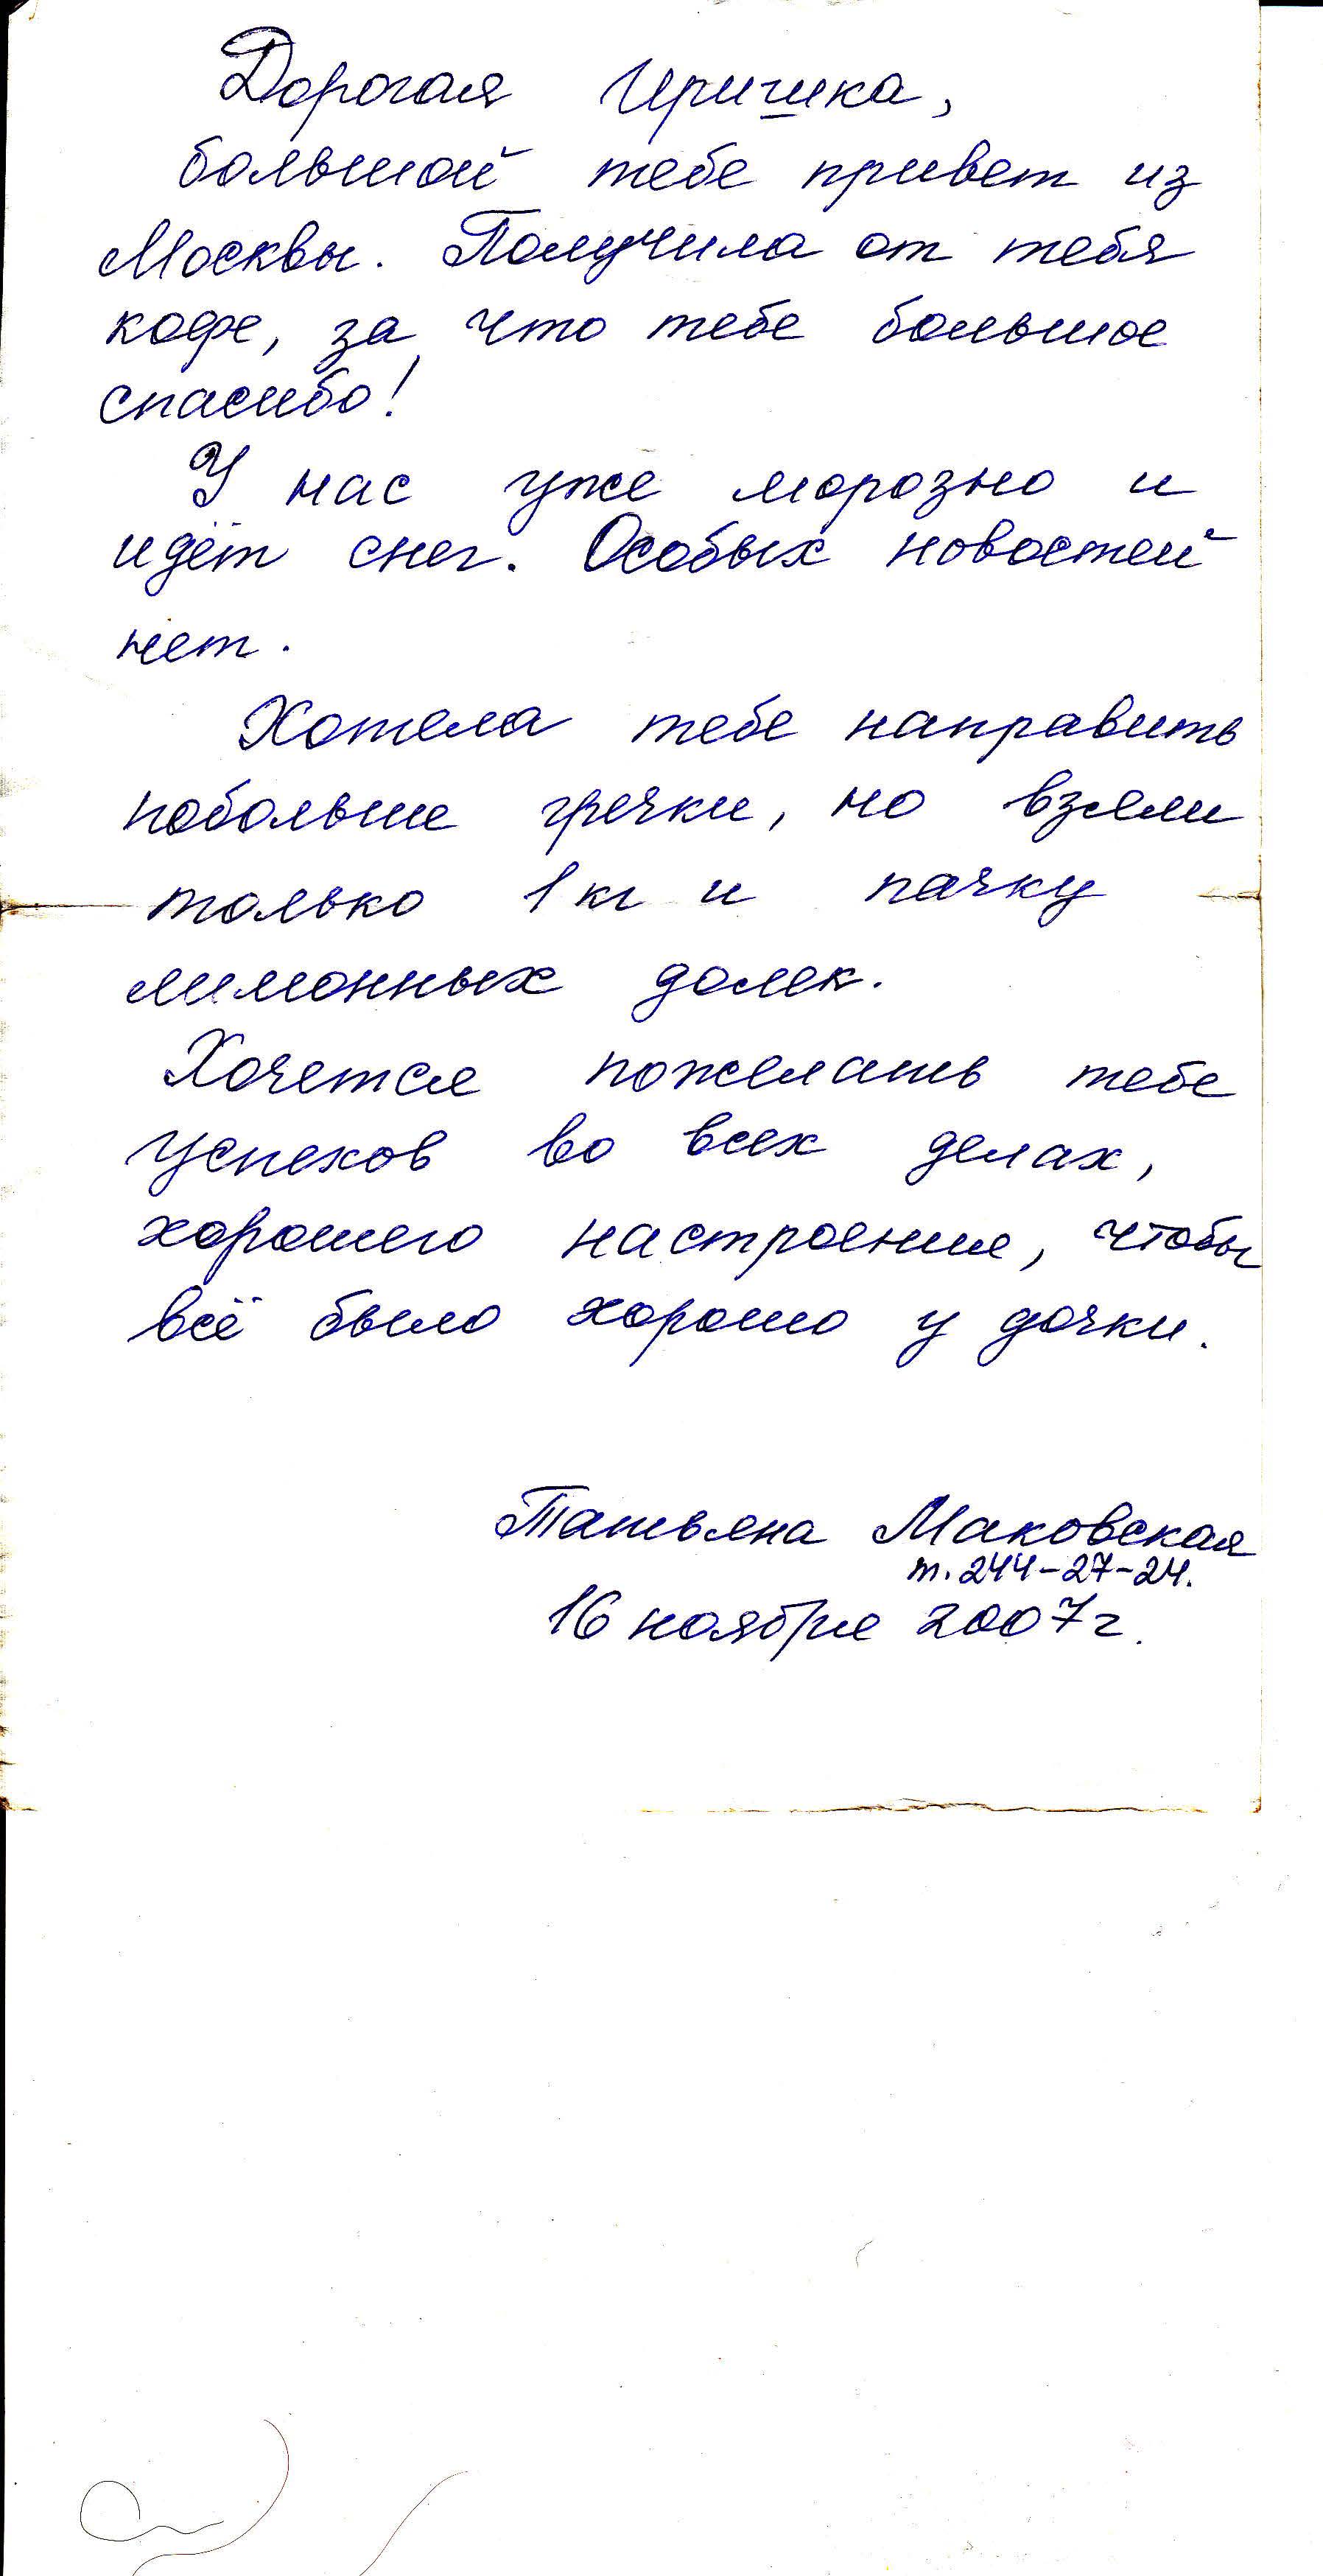 Дорогая Иришка,
большой тебе привет из
Москвы. Получила от тебя
кофе, за что тебе большое
спасибо!
У нас уже морозно и
идёт снег. Особых новостей
нет.
Хотела тебе направить
побольше гречки, но взяли
только 1 кг и пачку
лимонных долек.
Хочется пожелать тебе
успехов во всех делах,
хорошего настроения, чтобы
всё было хорошо у дочки.
Татьяна Маковская
т. 244-27-24.
16 ноября 2007 г.